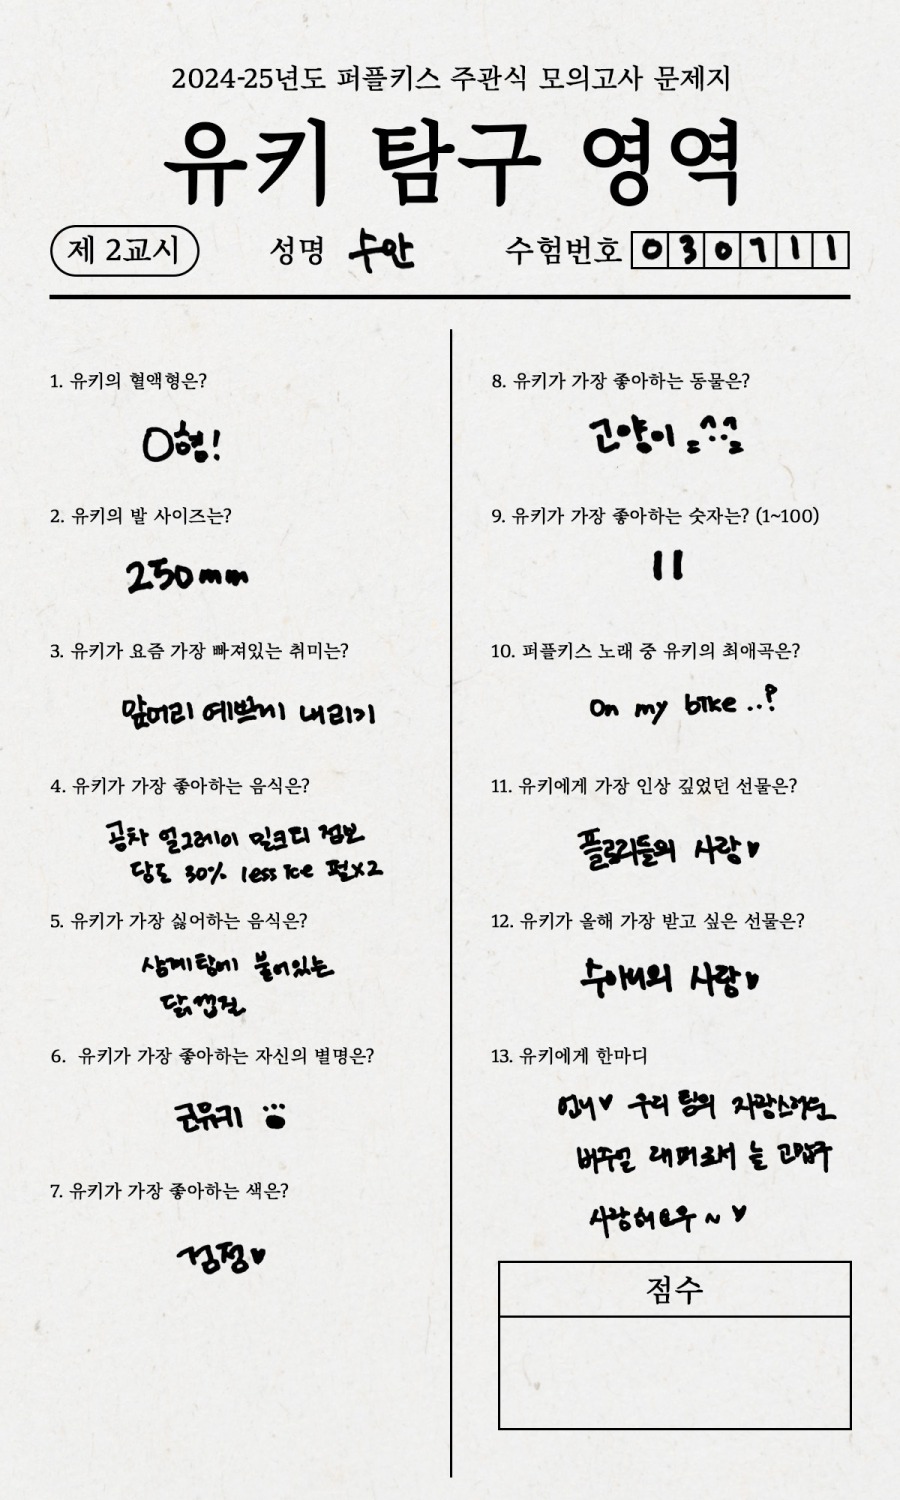 2024-25년도 퍼플키스 주관식 모의고사 문제지
유키 탐구 영역
제 2교시
성명 수안
수험번호 030711
1. 유키의 혈액형은?
O형!
2. 유키의 발 사이즈는?
250mm
3. 유키가 요즘 가장 빠져있는 취미는?
앞머리 예쁘게 내리기
4. 유키가 가장 좋아하는 음식은?
공차 얼그레이 밀크티 점보
당도 30% less ice 펄x2
5. 유키가 가장 싫어하는 음식은?
삼계탕에 붙어있는
닭껍질
6. 유키가 가장 좋아하는 자신의 별명은?
군유키
7. 유키가 가장 좋아하는 색은?
검정♥
8. 유키가 가장 좋아하는 동물은?
고양이
9. 유키가 가장 좋아하는 숫자는? (1~100)
11
10. 퍼플키스 노래 중 유키의 최애곡은?
On my bike ..?
11. 유키에게 가장 인상 깊었던 선물은?
플로리들의 사랑♥
12. 유키가 올해 가장 받고 싶은 선물은?
수아니의 사랑♥
13. 유키에게 한마디
언니♥ 우리 팀의 자랑스러운
버주얼 래퍼로서 늘 고맙구
사랑해요우~♥
점수